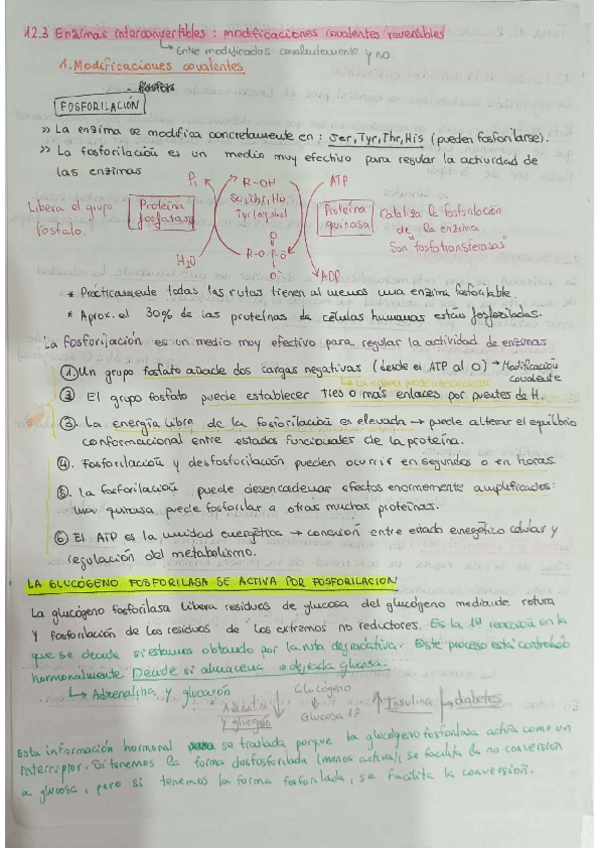 12.3 Enzimas interconvertibles : modificaciones covalentes reversibles
↳ Entre modificadas covalentemente y no
1. Modificaciones covalentes
FOSFORILACIÓN
>> La enzima se modifica concretamente en: Ser, Tyr, Thr, His (pueden fosforilarse).
>> La fosforilación es un medio muy efectivo para regular la actividad de
las enzimas
Pi
R-OH
ATP
Libera el grupo
fosfato.
Proteína
fosfatasa
Ser, Thr,
Tyr
Proteína
quinasa
Cataliza la fosforilación
de la enzima
Son "fosfotransferasas"
H2O
R-O-P-O-
O
O-
ADP
* Prácticamente todas las rutas tienen al menos una enzima fosforilable.
* Aprox. el 30% de las proteínas de células humanas están fosforiladas.
La fosforilación es un medio muy efectivo para regular la actividad de enzimas
① Un grupo fosfato añade dos cargas negativas (desde el ATP al O) → Modificación
covalente
② El grupo fosfato puede establecer tres o más enlaces por puentes de H.
③. La energía libre de la fosforilación es elevada → puede alterar el equilibrio
conformacional entre estados funcionales de la proteína.
④. Fosforilación y desfosforilación pueden ocurrir en segundos o en horas.
⑤. La fosforilación puede desencadenar efectos enormemente amplificados:
una quinasa puede fosforilar a otras muchas proteínas.
⑥ El ATP es la unidad energética → conexión entre estado energético celular y
regulación del metabolismo.
LA GLUCÓGENO FOSFORILASA SE ACTIVA POR FOSFORILACIÓN
La glucógeno fosforilasa libera residuos de glucosa del glucógeno mediante rotura
y fosforilación de los residuos de los extremos no reductores. Es la 1ª reacción en la
que se decide si estamos obtando por la ruta degradativa. Este proceso está controlado
hormonalmente. Decide si almacena o degrada glucosa.
↳ Adrenalina y glucagón
Adrenalina
y glucagón
Glucógeno
↓
Glucosa 1P
↑ Insulina
diabetes
Esta información hormonal se traslada porque la glucógeno fosforilasa actúa como un
interruptor. Si tenemos la forma desfosforilada (menos activa), se facilita la no conversión
a glucosa, pero si tenemos la forma fosforilada, se facilita la conversión.